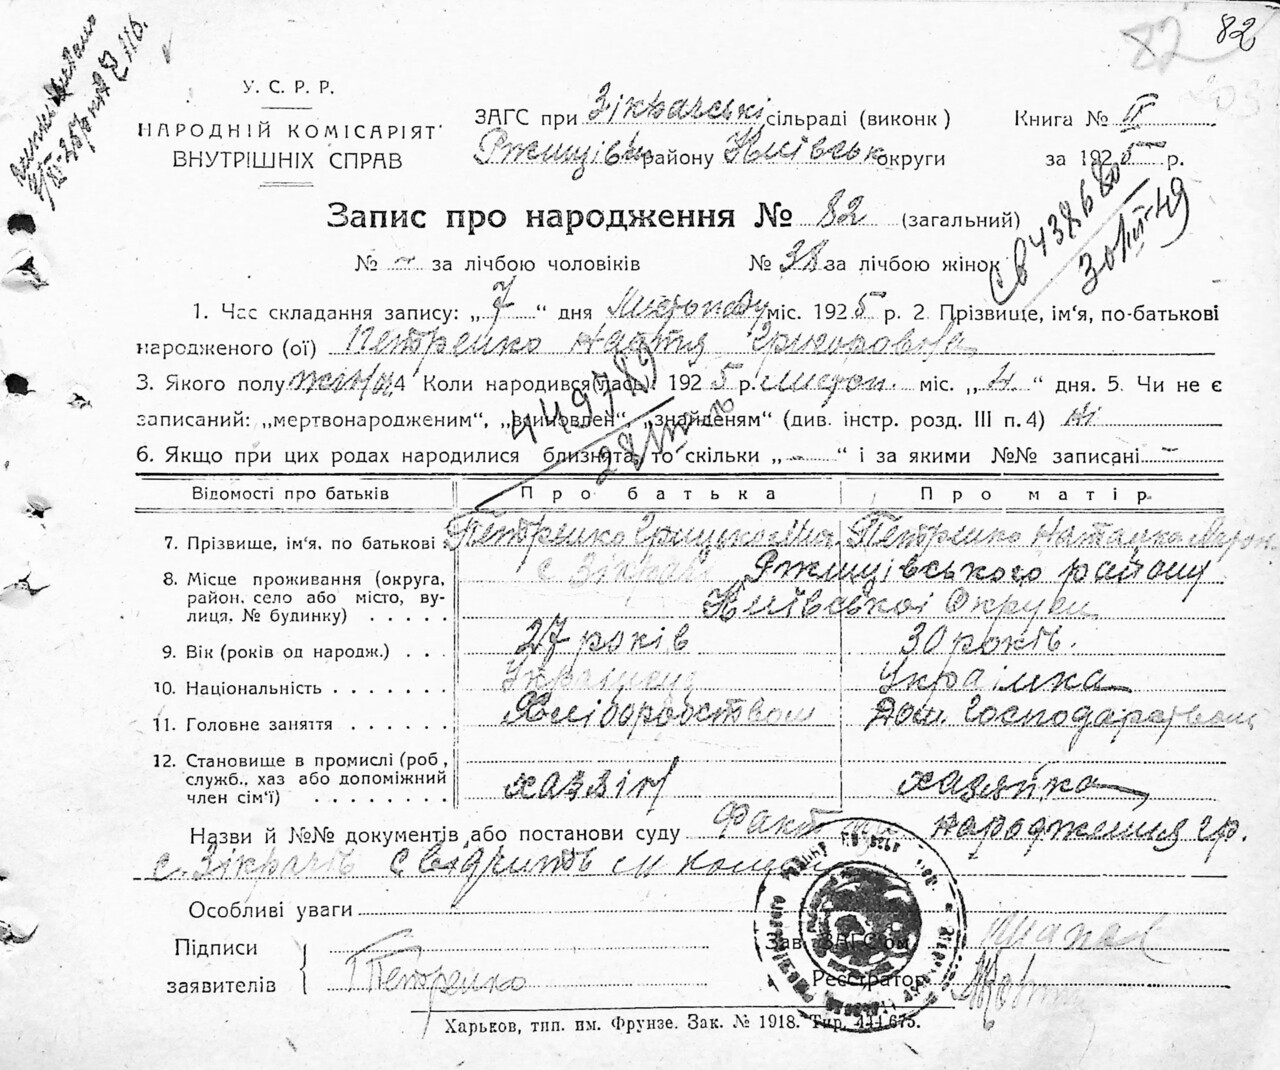 82
82
У. С. Р. Р.
НАРОДНІЙ КОМІСАРІЯТ
ВНУТРІШНІХ СПРАВ
ЗАГС при Зікрачські сільраді (виконк)
Ржищівськ району Київськ округи
Книга № II
за 1925 р.
Запис про народження № 82 (загальний)
№ - за лічбою чоловіків № 38 за лічбою жінок
СВ 438680
30/III-49
1. Час складання запису: „7“ дня Листопаду міс. 1925 р. 2. Прізвище, ім'я, по-батькові
народженого (ої) Петренко Настя Григоровна
3. Якого полу жіноч. 4 Коли народився(лась) 1925 р. листоп. міс. „4“ дня. 5. Чи не є
записаний: „мертвонародженим“, „вдиновлен“, „знайденям“ (див. інстр. розд. III п. 4) ні
449789
6. Якщо при цих родах народилися близнята, то скільки „-“ і за якими №№ записані -
Відомості про батьків Про батька Про матір
7. Прізвище, ім'я, по батькові Петренко Грицько Мих Петренко Наталка Мирон
8. Місце проживання (округа, с Зікрачі Ржищівського району
район, село або місто, ву- Київської Округи
лиця, № будинку)
9. Вік (років од народж.) 27 років 30 років.
10. Національність Українець Українка
11. Головне заняття Хліборобством Дом. Господарством
12. Становище в промислі (роб.,
служб., хаз або допоміжний хазяїн хазяйка
член сім'ї)
Назви й №№ документів або постанови суду Факт народження гр.
с. Зікрачів
Особливі уваги
Підписи
заявителів Г Петренко
Зав. ЗАГС'ом
Реєстратор
Харьков, тип. им. Фрунзе. Зак. № 1918. Тир. 444.675.